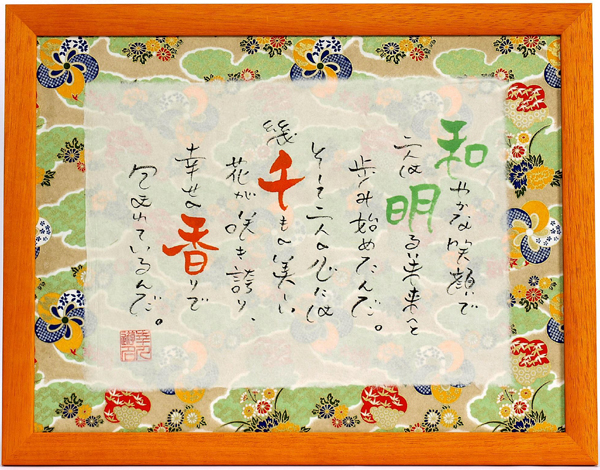 和やかな咲顔で
二人は明るい未来へと
歩み始めたんだ。
そして二人の心には
幾千もの美しい
花が咲き誇り、
幸せの香りで
包まれているんだ。